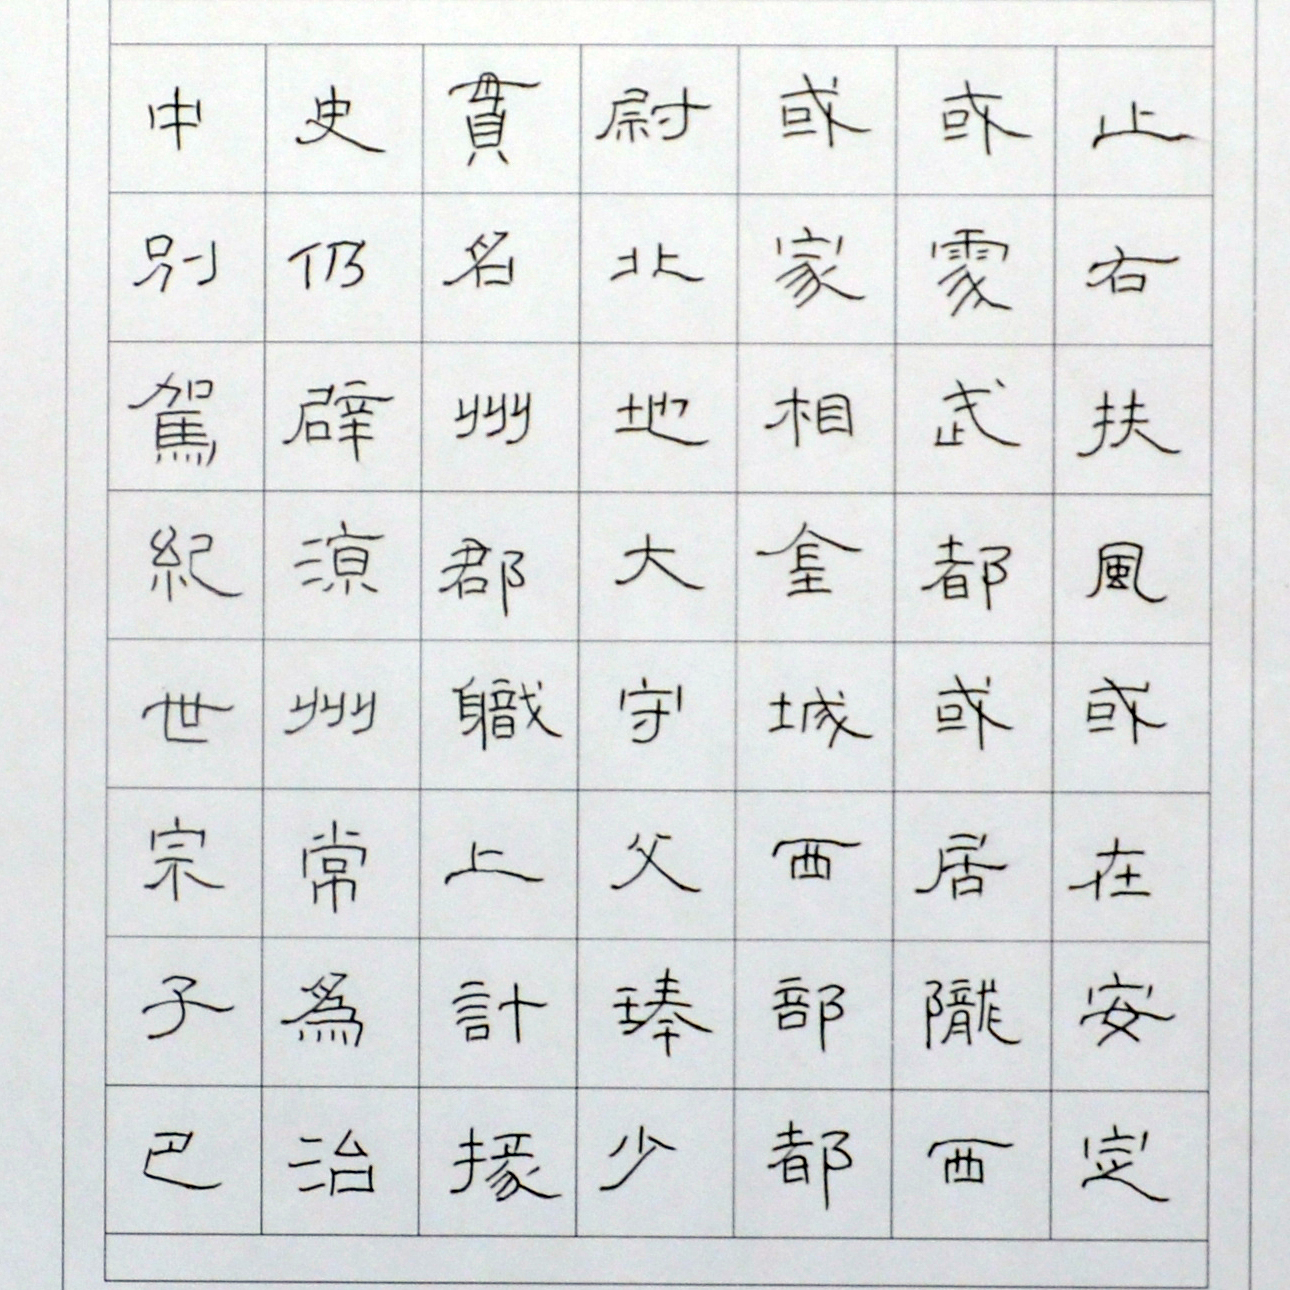 止右扶風或在安定
或處武都或居隴西
或家相金城西部都
尉北地大守父琫少
貫名州郡職上計掾
史仍辟涼州常為治
中別駕紀世宗子巴